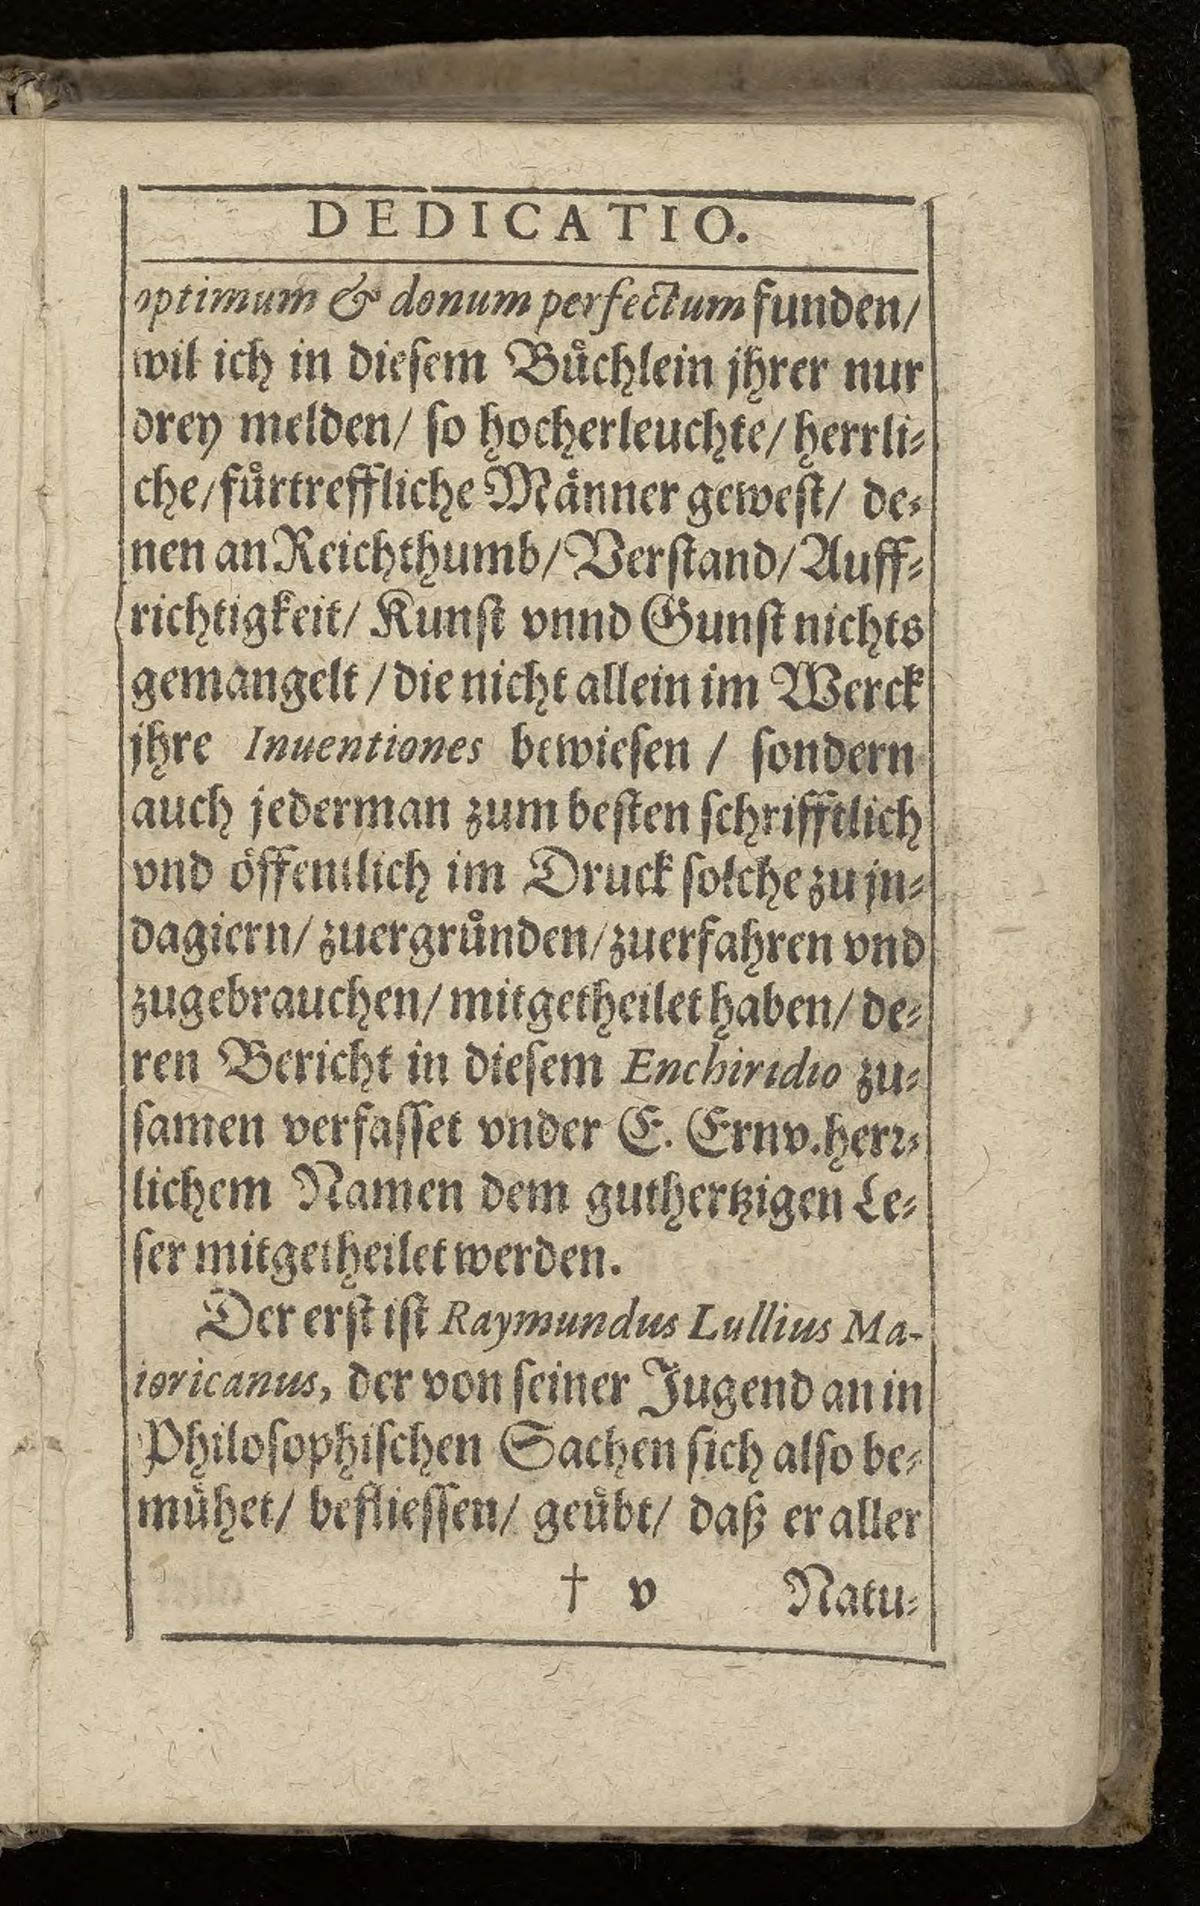 DEDICATIO.
optimum & donum perfectum funden/
wil ich in dieſem Buͤchlein jhrer nur
drey melden/ ſo hocherleuchte/ herrli⸗
che/ fuͤrtreffliche Maͤnner geweſt/ de⸗
nen an Reichthumb/ Verſtand/ Auff⸗
richtigkeit/ Kunſt vnnd Gunſt nichts
gemangelt / die nicht allein im Werck
jhre Inuentiones bewieſen / ſondern
auch jederman zum beſten ſchrifftlich
vnd oͤffentlich im Druck ſolche zu jn⸗
dagiern/ zuergruͤnden/ zuerfahren vnd
zugebrauchen/ mitgetheilet haben/ de⸗
ren Bericht in dieſem Enchiridio zu⸗
ſamen verfaſſet vnder E. Ernv. herꝛ⸗
lichem Namen dem guthertzigen Le⸗
ſer mitgetheilet werden.
Der erſt iſt Raymundus Lullius Ma-
ioricanus, der von ſeiner Jugend an in
Philoſophiſchen Sachen ſich alſo be⸗
muͤhet/ beflieſſen/ geuͤbt/ daß er aller
† v Natu⸗